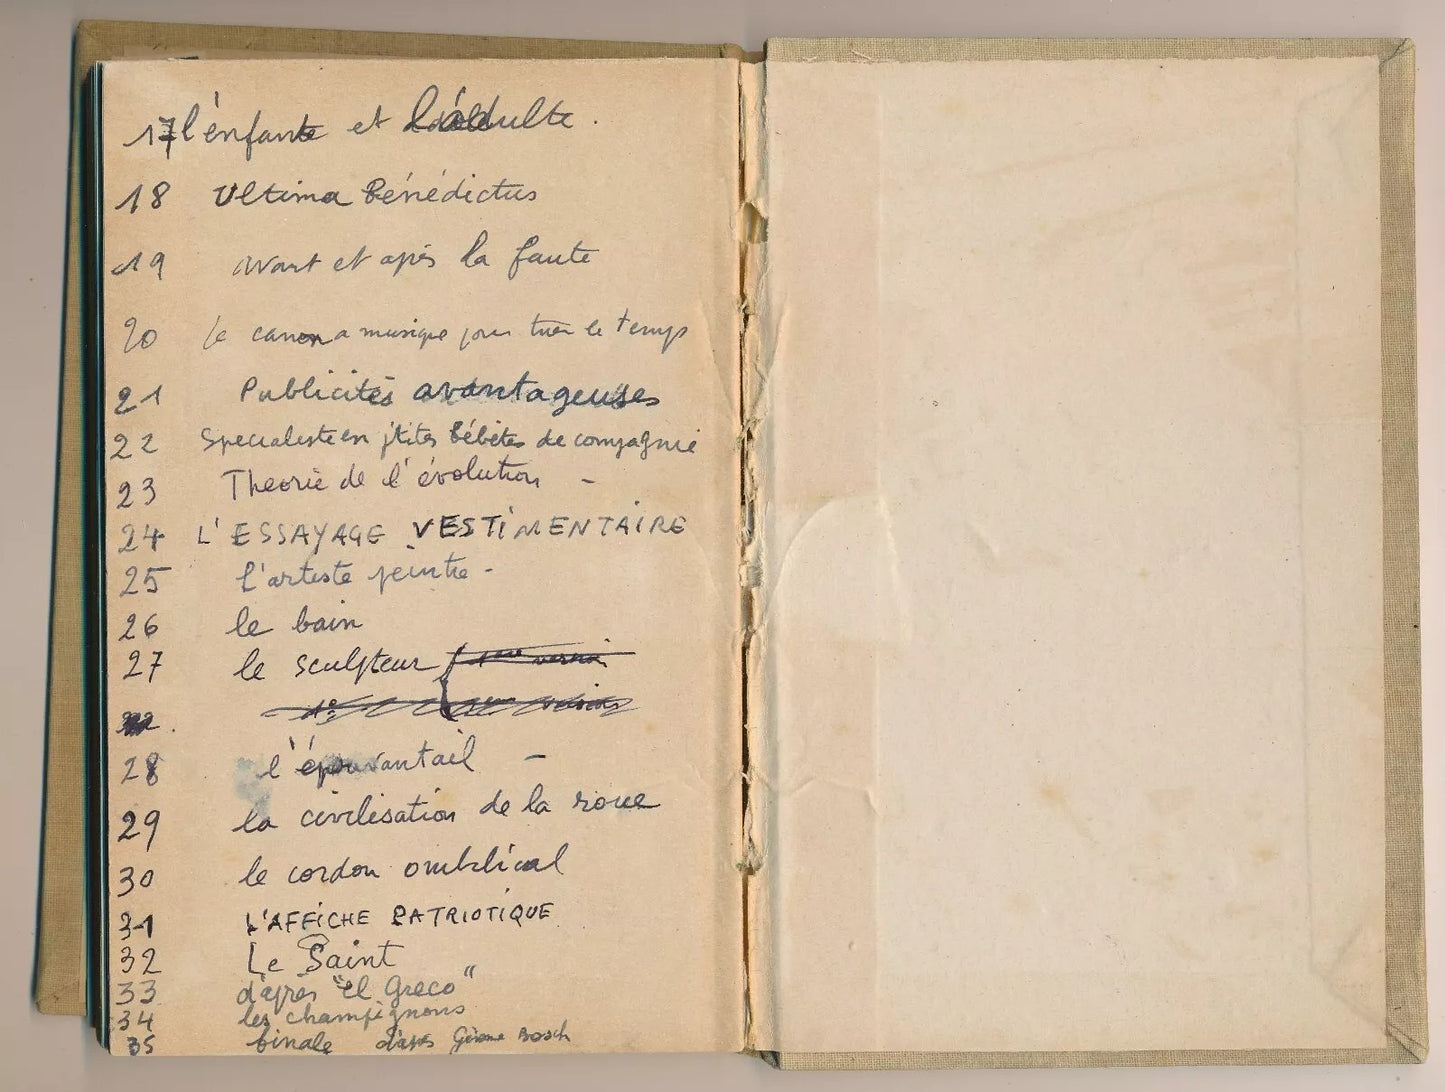 17 l'enfante et l'adulte.
18 Ultima Bénédictus
19 avant et après la faute
20 le canon a musique pour tuer le temps
21 Publicités avantageuses
22 Specialiste en p'tites bébêtes de compagnie
23 Theorie de l'évolution -
24 L'ESSAYAGE VESTIMENTAIRE
25 l'artiste peintre -
26 le bain
27 le sculpteur
28 l'épouvantail -
29 la civilisation de la roue
30 le cordon omblical
31 L'AFFICHE PATRIOTIQUE
32 Le Saint
33 d'après "el Greco"
34 les champignons
35 finale d'après Gérome Bosch